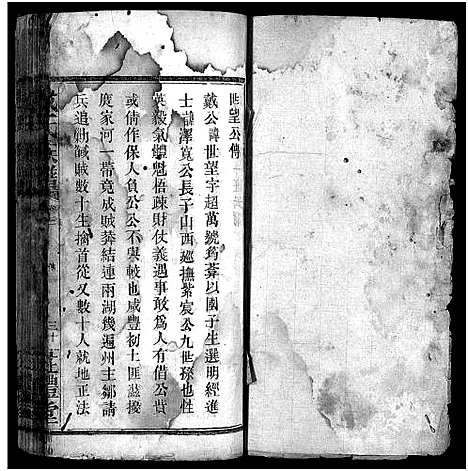 世望公傳
戴公諱世望字超萬號筠葊以國子生選明經進
士諱澤寬公長子山西廵撫紫宸公九世孫也性
英毅氣軆魁梧疎財仗義遇事敢爲人有借公貲
或倩作保人負公公不與較也咸豐初土匪蓋擾
度家河一帶竟成賊藪結連兩湖幾遍州主鄒請
兵追勦馘賊數十生擒首從又數十人就地正法